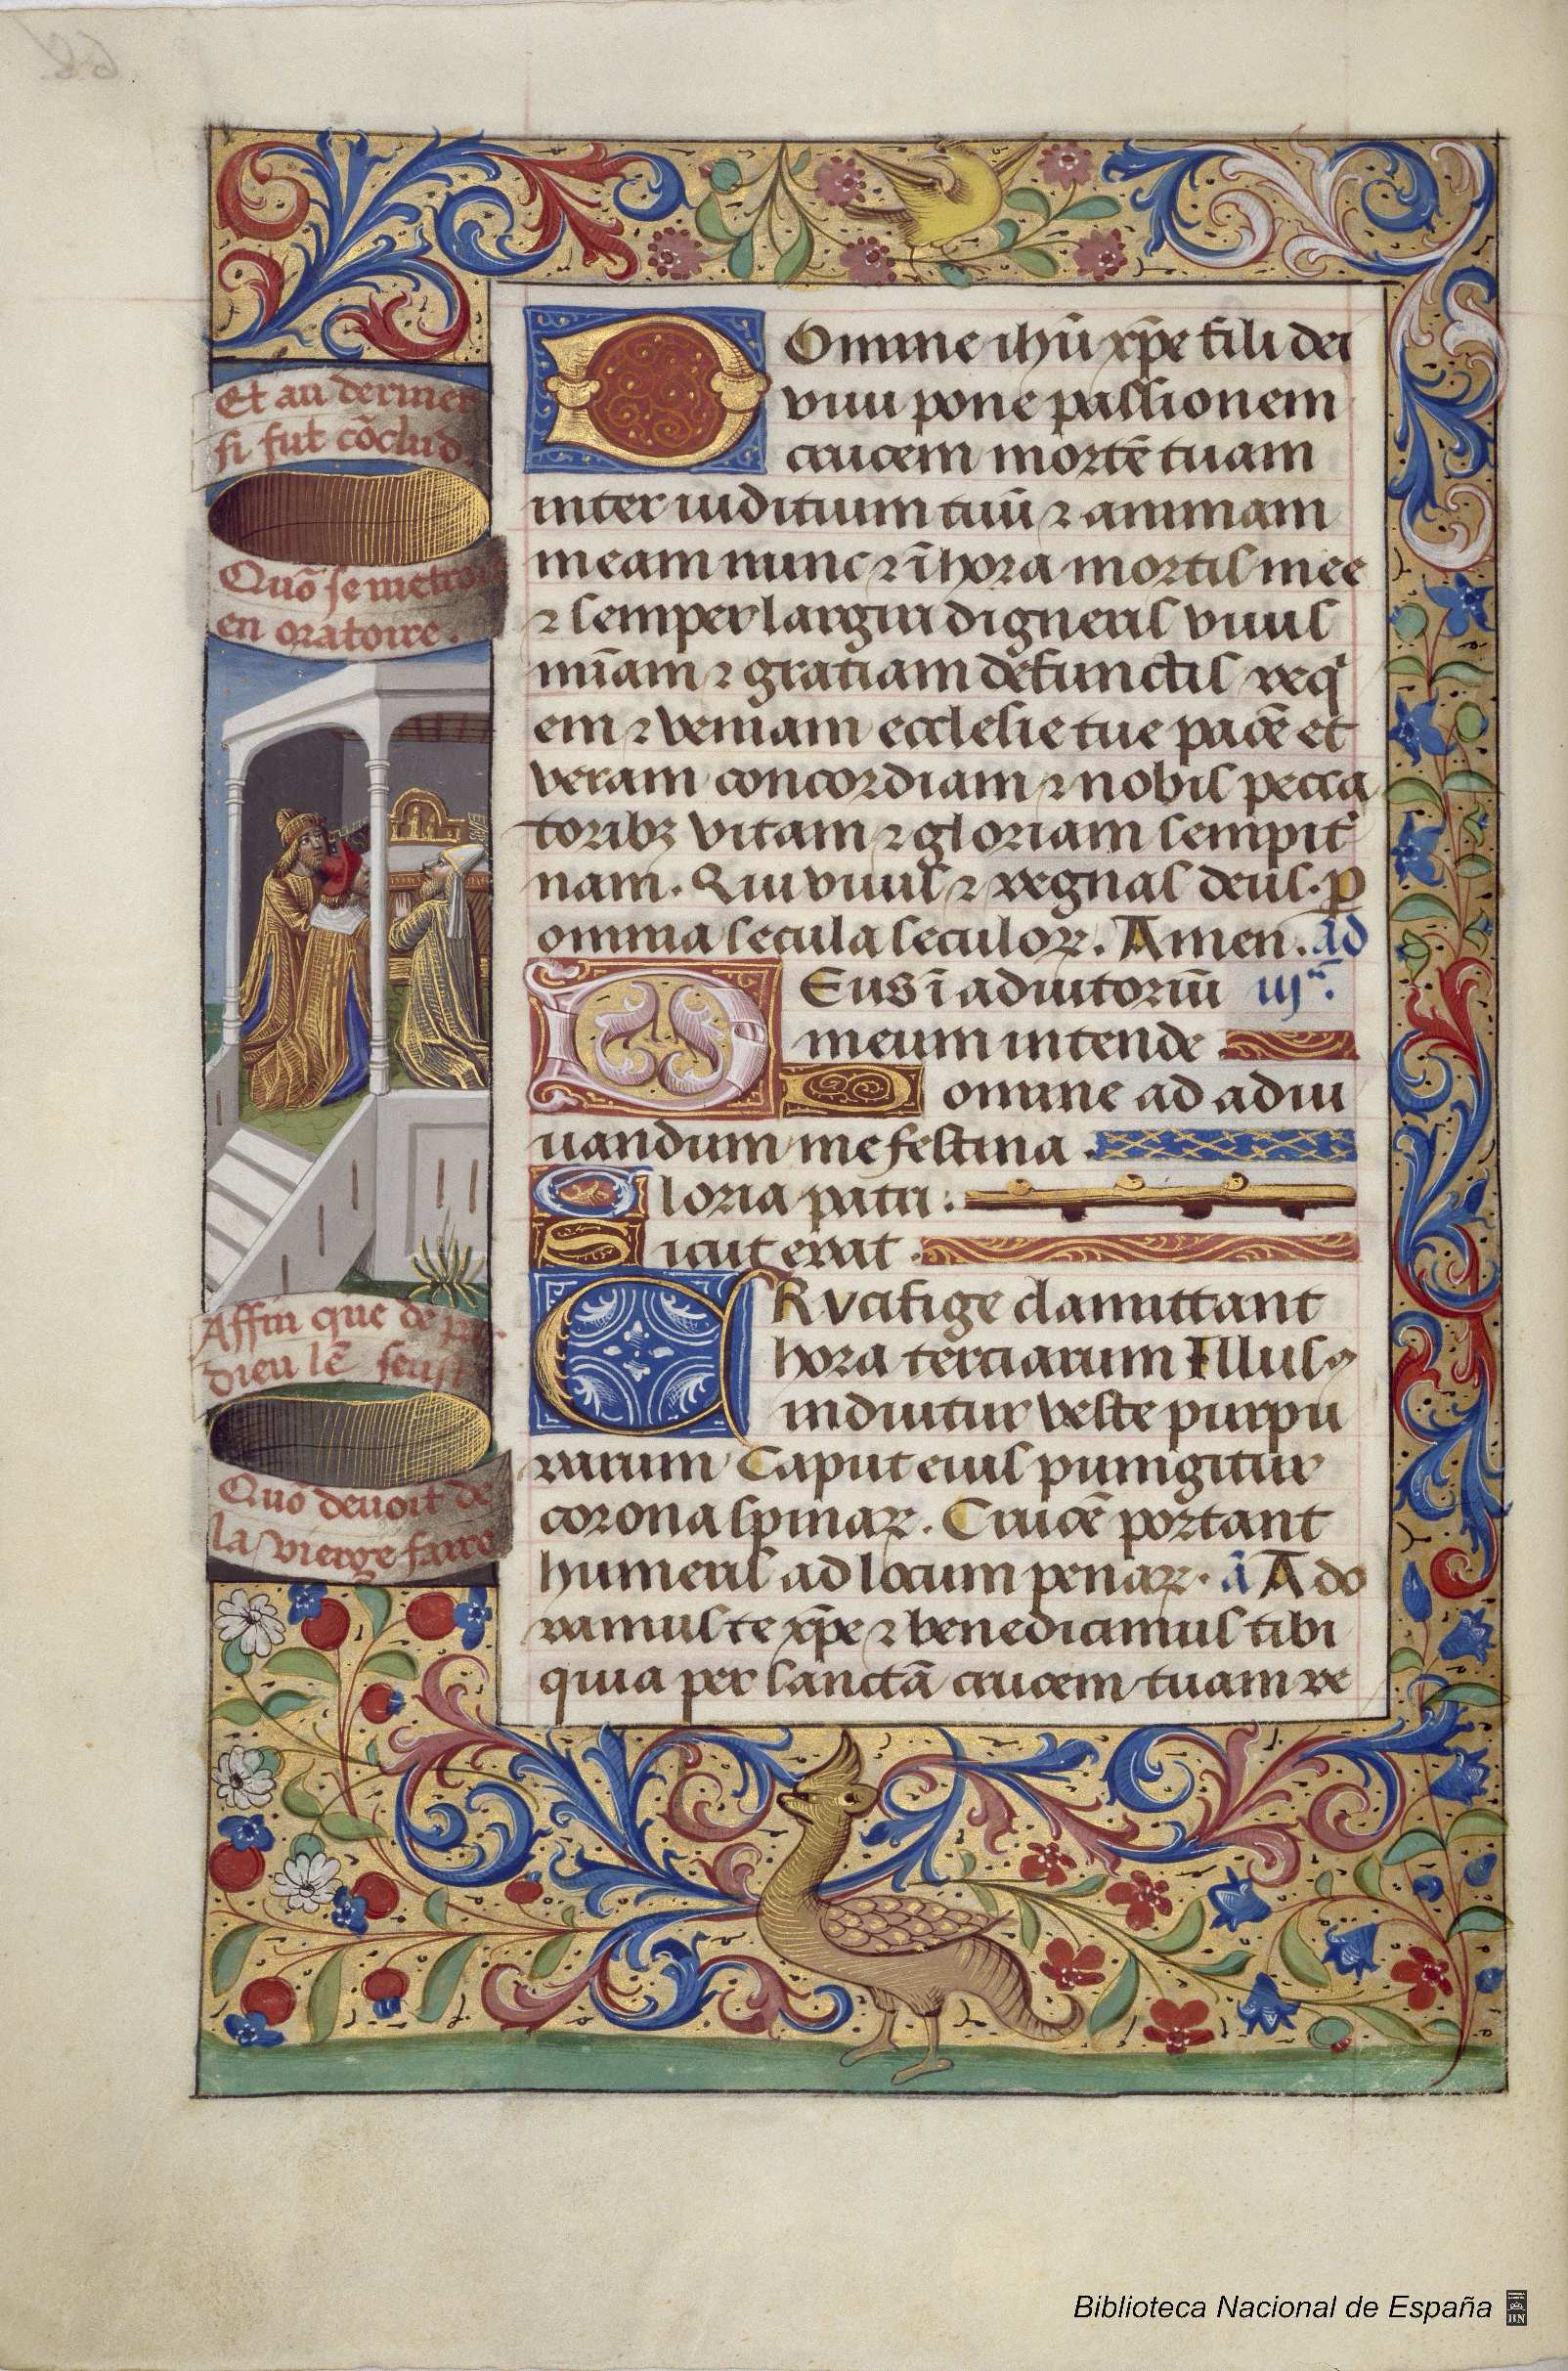 Et au dernier
fi fut cõclud
Quõ se mettroi
en oratoire.
Affin que de
dieu lẽ seust
Quõ deuoit de
la vierge faire
Domine ihũ xp̃e fili dei
viui pone passionem
crucem mortẽ tuam
inter iuditium tuũ ⁊ animam
meam nunc ⁊ ĩ hora mortis mee
⁊ semper largiri digneris viuis
miãm ⁊ gratiam defunctis req̇
em ⁊ veniam ecclesie tue pacẽ et
veram concordiam ⁊ nobis pecca
toribꝫ vitam ⁊ gloriam sempit̾
nam. Qui viuis ⁊ regnas deus. ꝑ
omnia secula seculoꝝ. Amen. ad
Deus ĩ adiutoriũ iij.ᵃᵐ
meum intende.
Domine ad adiu
uandum me festina.
Gloria patri.
Sicut erat.
CRucifige clamittant
hora terciarum Illusꝰ
induitur veste purpu
rarum Caput eius pungitur
corona spinaꝝ. Crucẽ portant
humeris ad locum penaꝝ. ã Ado
ramus te xp̃e ⁊ benedicimus tibi
quia per sanctã crucem tuam re
Biblioteca Nacional de España